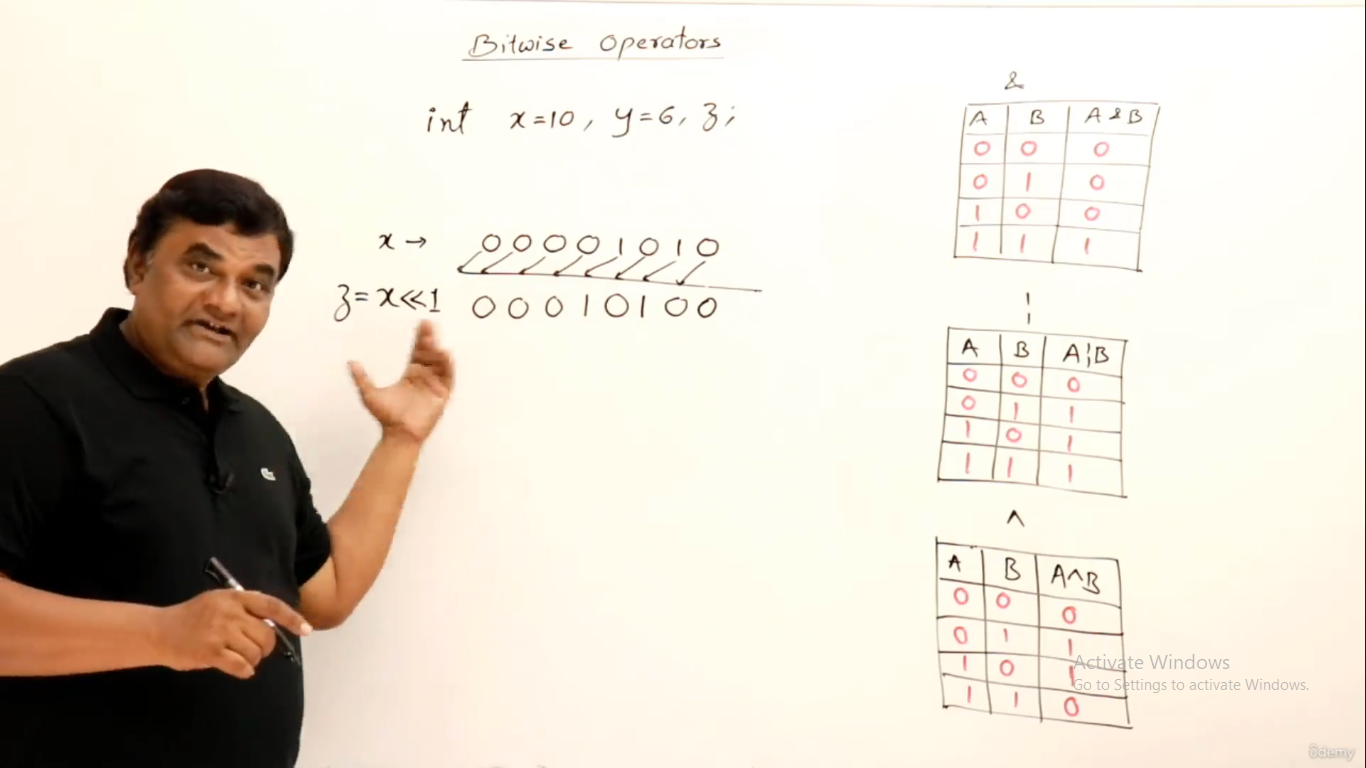 Bitwise Operators
int x=10, y=6, z;
x → 0 0 0 0 1 0 1 0
z = x<<1 0 0 0 1 0 1 0 0
&
A B A & B
0 0 0
0 1 0
1 0 0
1 1 1
¦
A B A¦B
0 0 0
0 1 1
1 0 1
1 1 1
^
A B A^B
0 0 0
0 1 1
1 0 1
1 1 0
Activate Windows
Go to Settings to activate Windows.
ûdemy